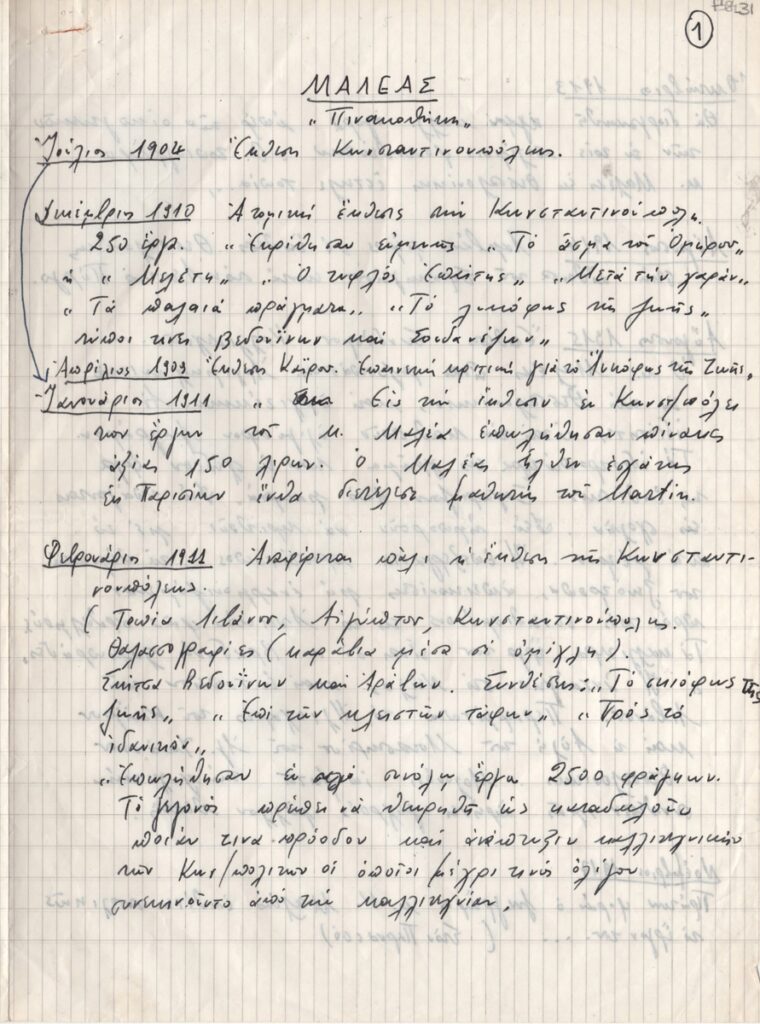 1
ΜΑΛΕΑΣ
„Πινακοθήκη„
Ἰούλιος 1904 Ἔκθεση Κωνσταντινουπόλεως.
Δεκέμβριος 1910 Ἀτομική ἔκθεσις στήν Κωνσταντινούπολη.
250 ἔργα. „Ἐκρίθησαν εὐμενῶς „Τό ᾆσμα τοῦ Ὁμήρου„
ἡ „Μελέτη„ „Ὁ τυφλός ἐπαίτης„ „Μετά τήν χαράν„
„Τά παλαιά πράγματα„ „Τό λυκόφως τῆς ζωῆς„
τύποι τινες Βεδουΐνων καί Σουδανέζων„
Ἀπρίλιος 1909 Ἔκθεση Καΐρου. Ἐπαινετική κριτική γιά τό Λυκόφως τῆς Ζωῆς„
Ἰανουάριος 1911 „ Εἰς τήν ἔκθεσιν ἐν Κωνστ/πόλει
των ἔργων τοῦ κ. Μαλέα ἐπωλήθησαν πίνακες
ἀξίας 150 λιρῶν. Ὁ Μαλέας ἦλθεν ἐσχάτως
ἐκ Παρισίων ἔνθα διετέλεσε μαθητής τοῦ Martin.
Φεβρουάριος 1911 Ἀναφέρεται πάλι ἡ ἔκθεση τῆς Κωνσταντι-
νουπόλεως.
(Τοπία Λιβάνου, Αἰγύπτου, Κωνσταντινουπόλης.
Θαλασσογραφίες (καράβια μέσα σέ ὁμίχλη).
Σκίτσα Βεδουΐνων καί Ἀράβων. Συνθέσεις: „Τό σκιόφως τῆς
ζωῆς„ „Ἐπί τῶν κλειστῶν τάφων„ „Πρός τό
ἰδανικόν„
„Ἐπωλήθησαν ἐν συνόλῳ ἔργα 2500 φράγκων.
Τό γεγονός πρέπει νά θεωρηθῇ ὡς καταδηλοῦν
ποιάν τινα πρόοδον καί ἀνάπτυξιν καλλιτεχνικήν
τῶν Κων/πολιτῶν οἱ ὁποῖοι μέχρι τινός ὀλίγον
συνεκινοῦντο ἀπό τήν καλλιτεχνίαν.